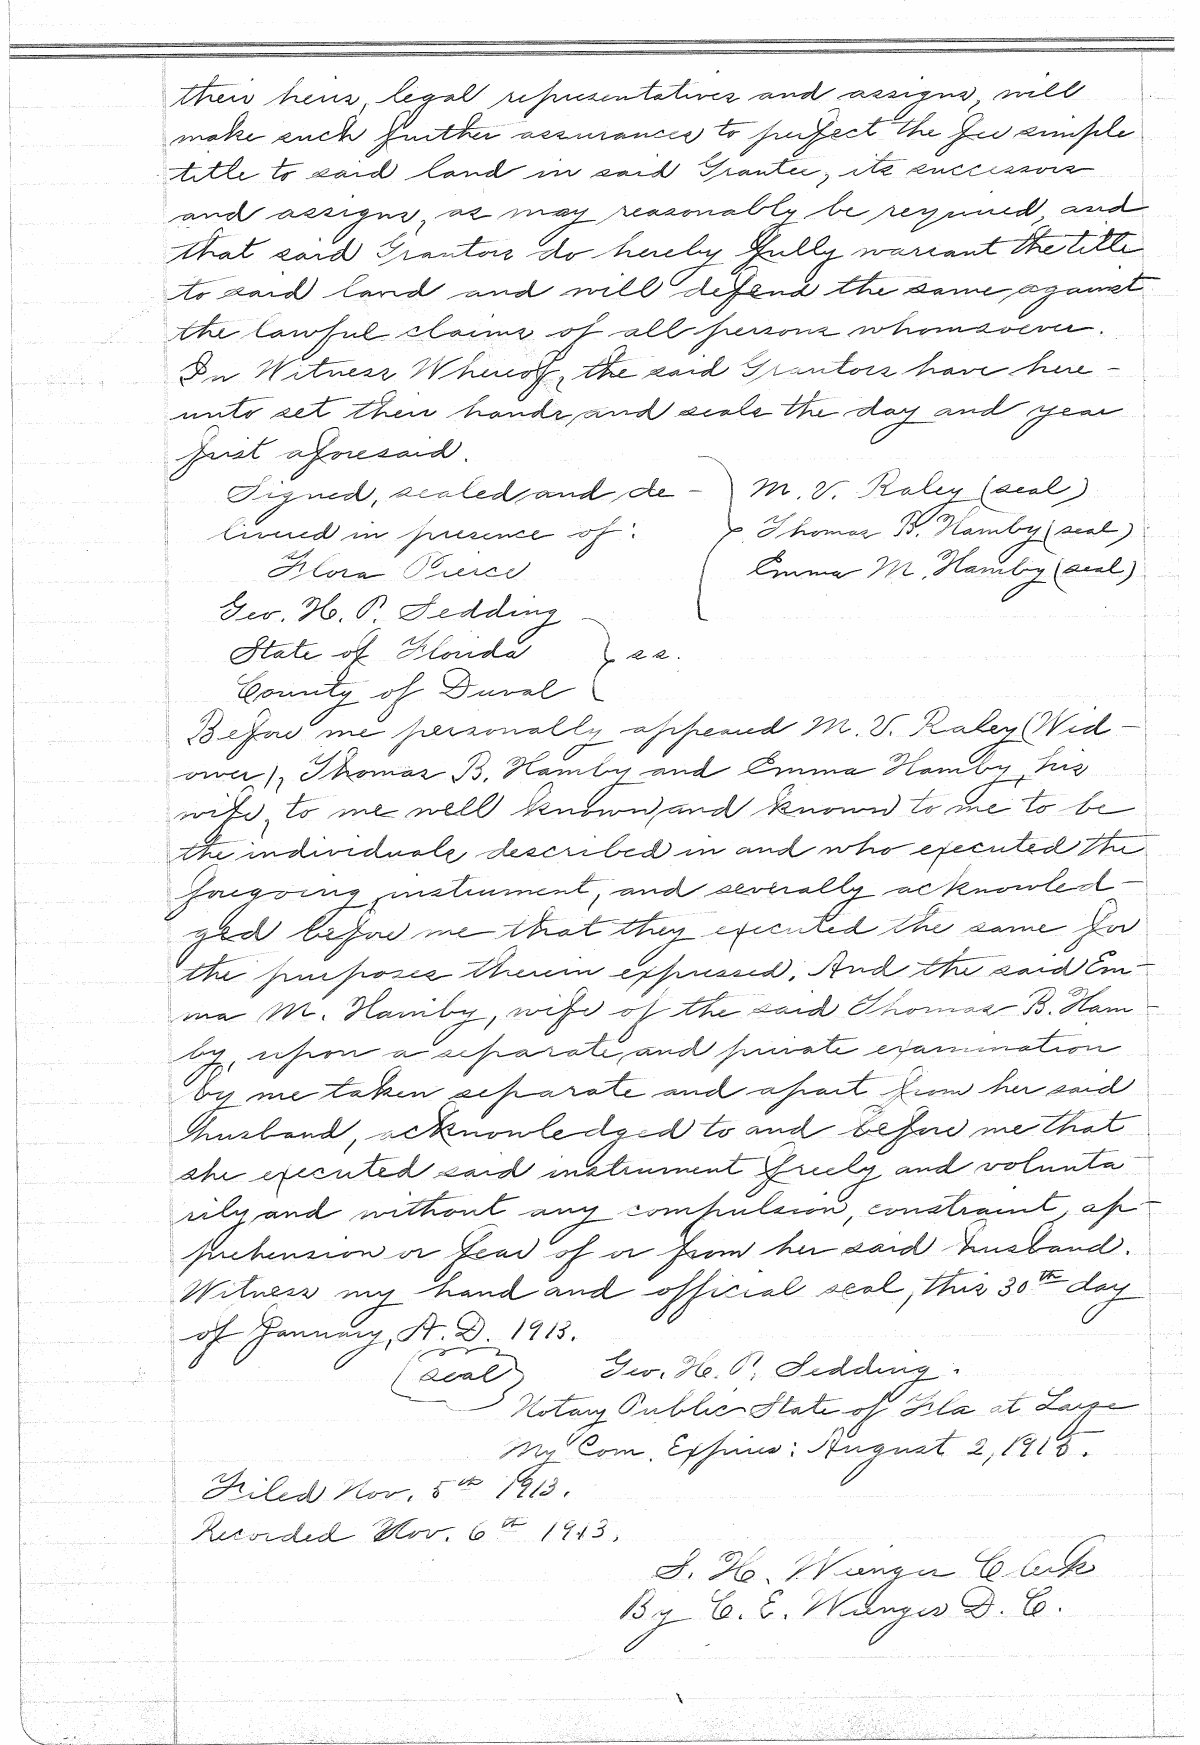 their heirs, legal representatives and assigns, will
make such further assurances to perfect the fee simple
title to said land in said Grantee, its successors
and assigns, as may reasonably be required, and
that said Grantors do hereby fully warrant the title
to said land and will defend the same against
the lawful claims of all persons whomsoever.
In Witness Whereof, the said Grantors have here-
unto set their hands and seals the day and year
first aforesaid.
Signed, sealed and de- M. V. Raley (seal)
livered in presence of: Thomas B. Hamby (seal)
Flora Pierce Emma M. Hamby (seal)
Geo. H. P. Sedding
State of Florida } ss.
County of Duval
Before me personally appeared M. V. Raley (Wid-
ower), Thomas B. Hamby and Emma Hamby, his
wife, to me well known, and known to me to be
the individuals described in and who executed the
foregoing instrument, and severally acknowled-
ged before me that they executed the same for
the purposes therein expressed. And the said Em-
ma M. Hamby, wife of the said Thomas B. Ham-
by, upon a separate and private examination
by me taken separate and apart from her said
husband, acknowledged to and before me that
she executed said instrument freely and volunta-
rily and without any compulsion, constraint, ap-
prehension or fear of or from her said husband.
Witness my hand and official seal, this 30th day
of January, A. D. 1913.
(seal) Geo. H. P. Sedding.
Notary Public State of Fla at Large
My Com. Expires: August 2, 1915.
Filed Nov. 5th 1913.
Recorded Nov. 6th 1913.
H. Clerk
By C. E. D. C.